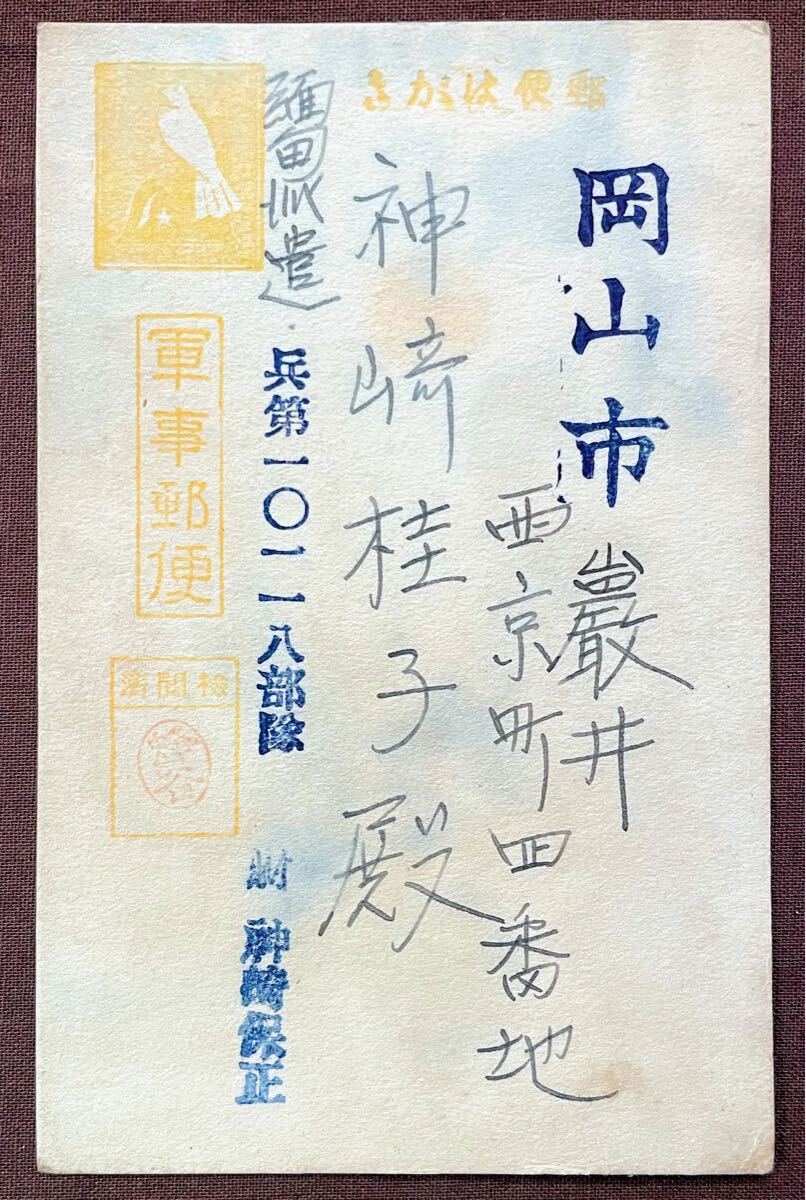 郵便はがき
岡山市巖井
西京町四番地
神崎桂子殿
緬甸派遣
兵第一〇一一八部隊
神崎保正
軍事郵便
検閲済